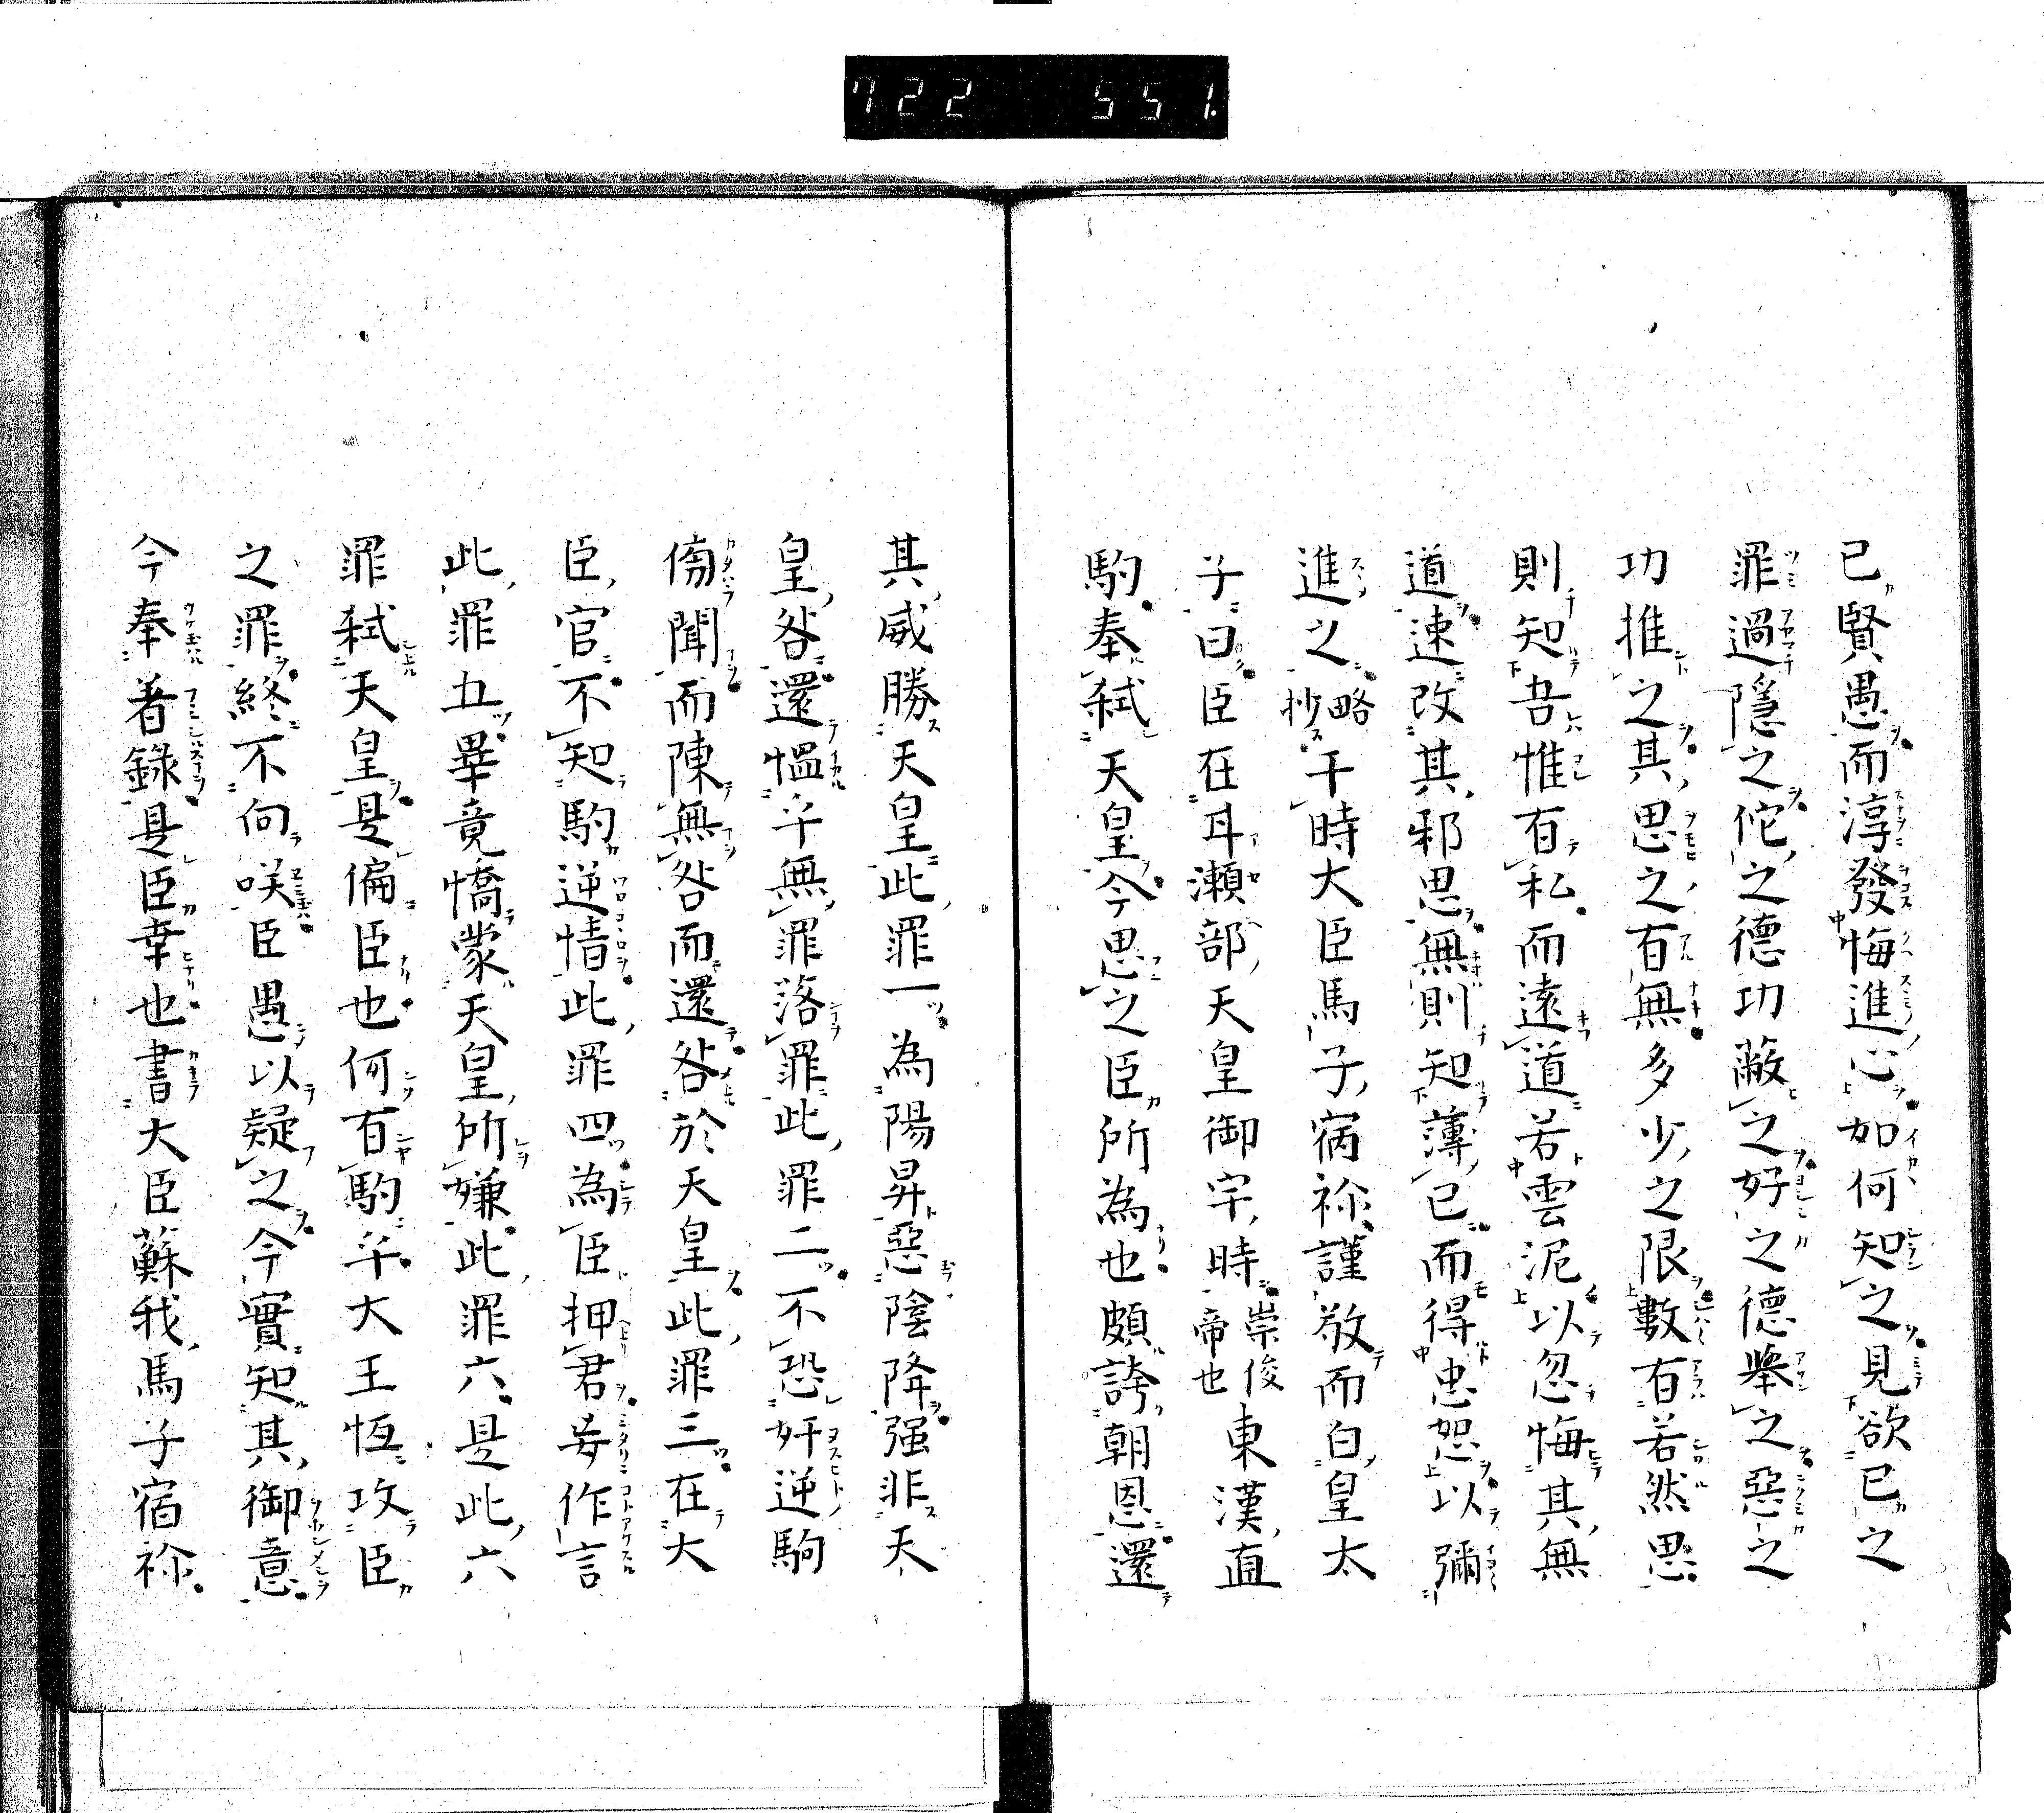 722 551.
已賢愚而淳發悔進心如何知之見欲已之
罪過隱之佗之德功蔽之好之德舉之惡之
功推之其思之有無多少之限數有若然思
則知吾惟有私而遠道若雲泥以忽悔其無
道速改其邪思無則知薄已而得忠恕以彌
進之略抄于時大臣馬子病祢謹敬而白皇太
子曰臣在耳瀬部天皇御宇時崇俊帝也東漢直
駒奉弑天皇今思之臣所為也頗誇朝恩還
其威勝天皇此罪一為陽昇惡陰降强非天
皇咎還慍乎無罪落罪此罪二不恐奸逆駒
傍聞而陳無咎而還咎於天皇此罪三在大
臣官不知駒逆情此罪四為臣押君妄作言
此罪五畢竟憍蒙天皇所嫌此罪六是此六
罪弑天皇是偏臣也何有駒乎大王恆攻臣
之罪終不向咲臣愚以疑之今實知其御意
今奉着錄是臣幸也書大臣蘇我馬子宿祢